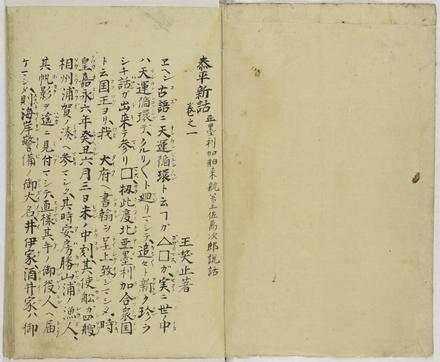 泰平新話 亜墨利加舶来航并土佐萬次郎説話
巻之一
王笑止著
エヘン古語ニ天運循環ト云フガ△□ガ、実ニ世ノ中
ハ天運循環デ、クルリ〱ト廻リマシテ、追々ト新タ珍ラ
シキ話ガ出来テ参リ□扨此度北亜墨利加合衆国
ト云国王ヨリ我 大府ヘ書翰ヲ呈上致シマシタ、時
皇嘉永六年癸丑六月三日未ノ中刻其使舩四艘
相州浦賀ノ湊ヘ参マシタ、其時安房勝山浦ノ漁人、
其帆影ヲ遥ニ見付マシテ直様其手ノ御役人ヘ届
ケマシタ、則海岸警備ノ御大名井伊家酒井家ハ御